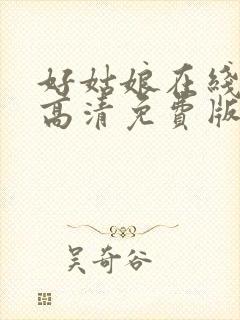 好姑娘在线
高清免費版
吴奇谷